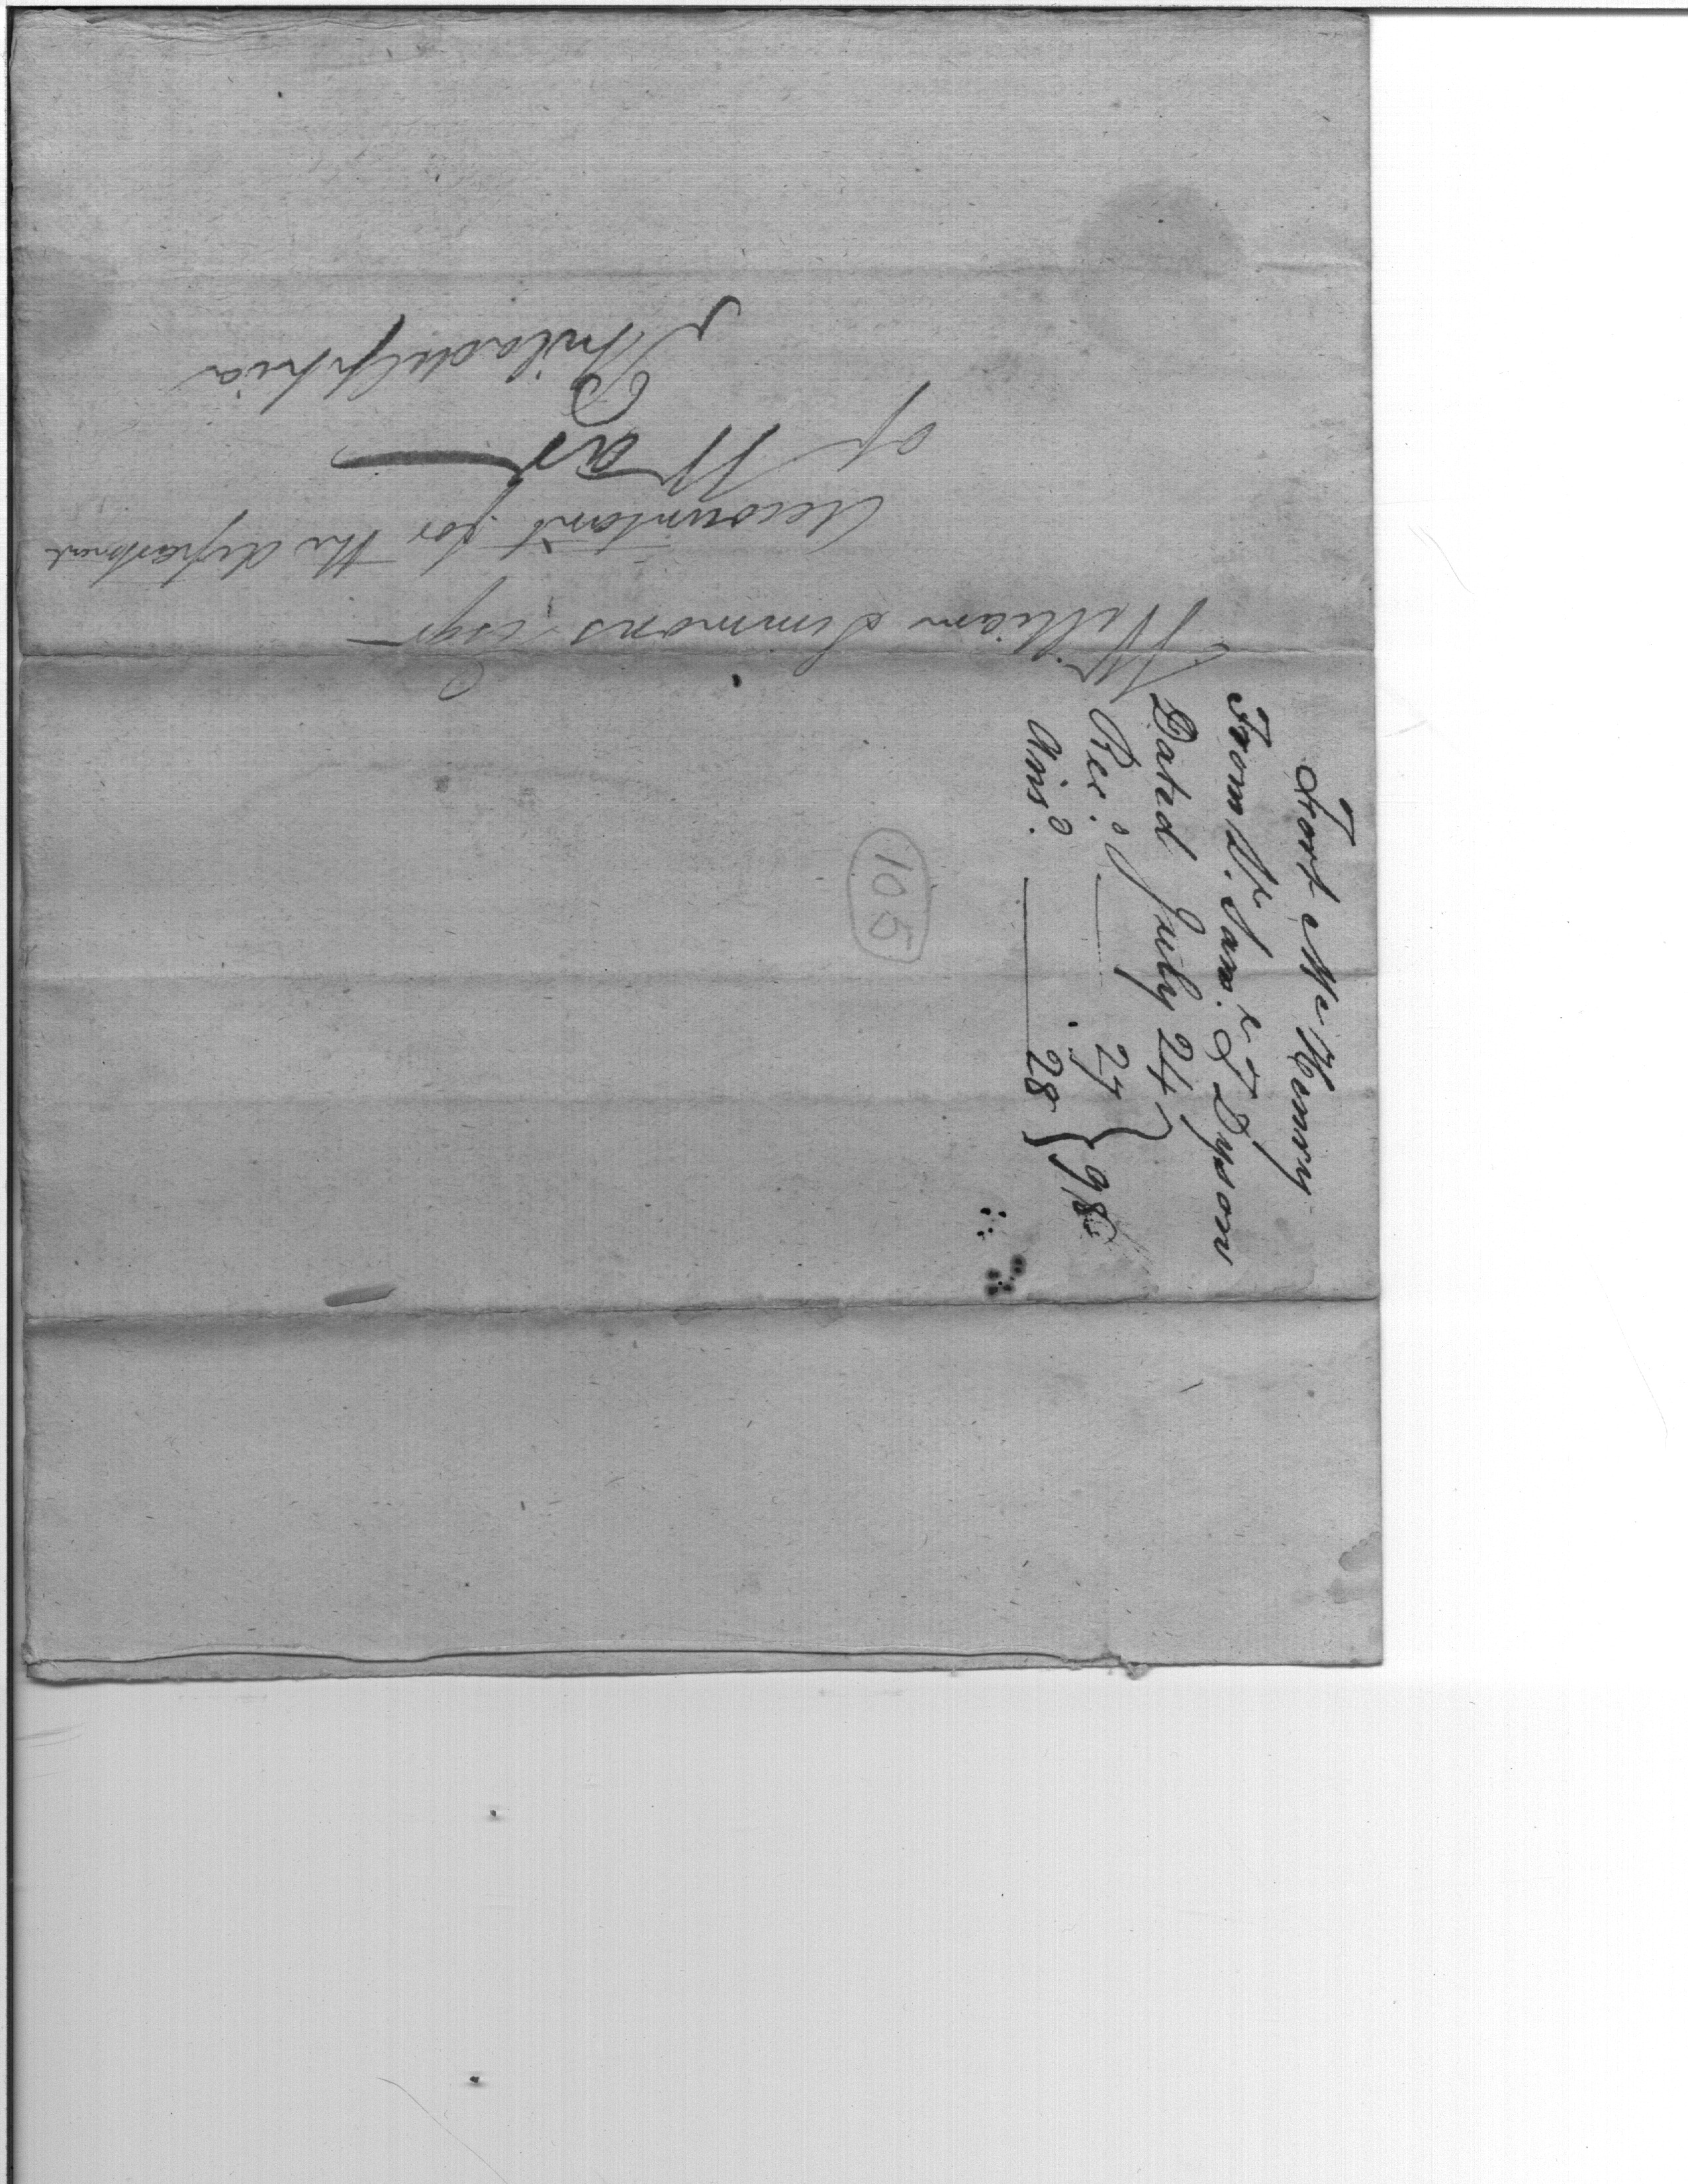 William Simmons Esqr
Accountant for the department
of War
Philadelphia
Fort McHenry
From Lt. Sam.l T Dyson
Dated July 24
Rec.d 27
Ans.d 28
98
105